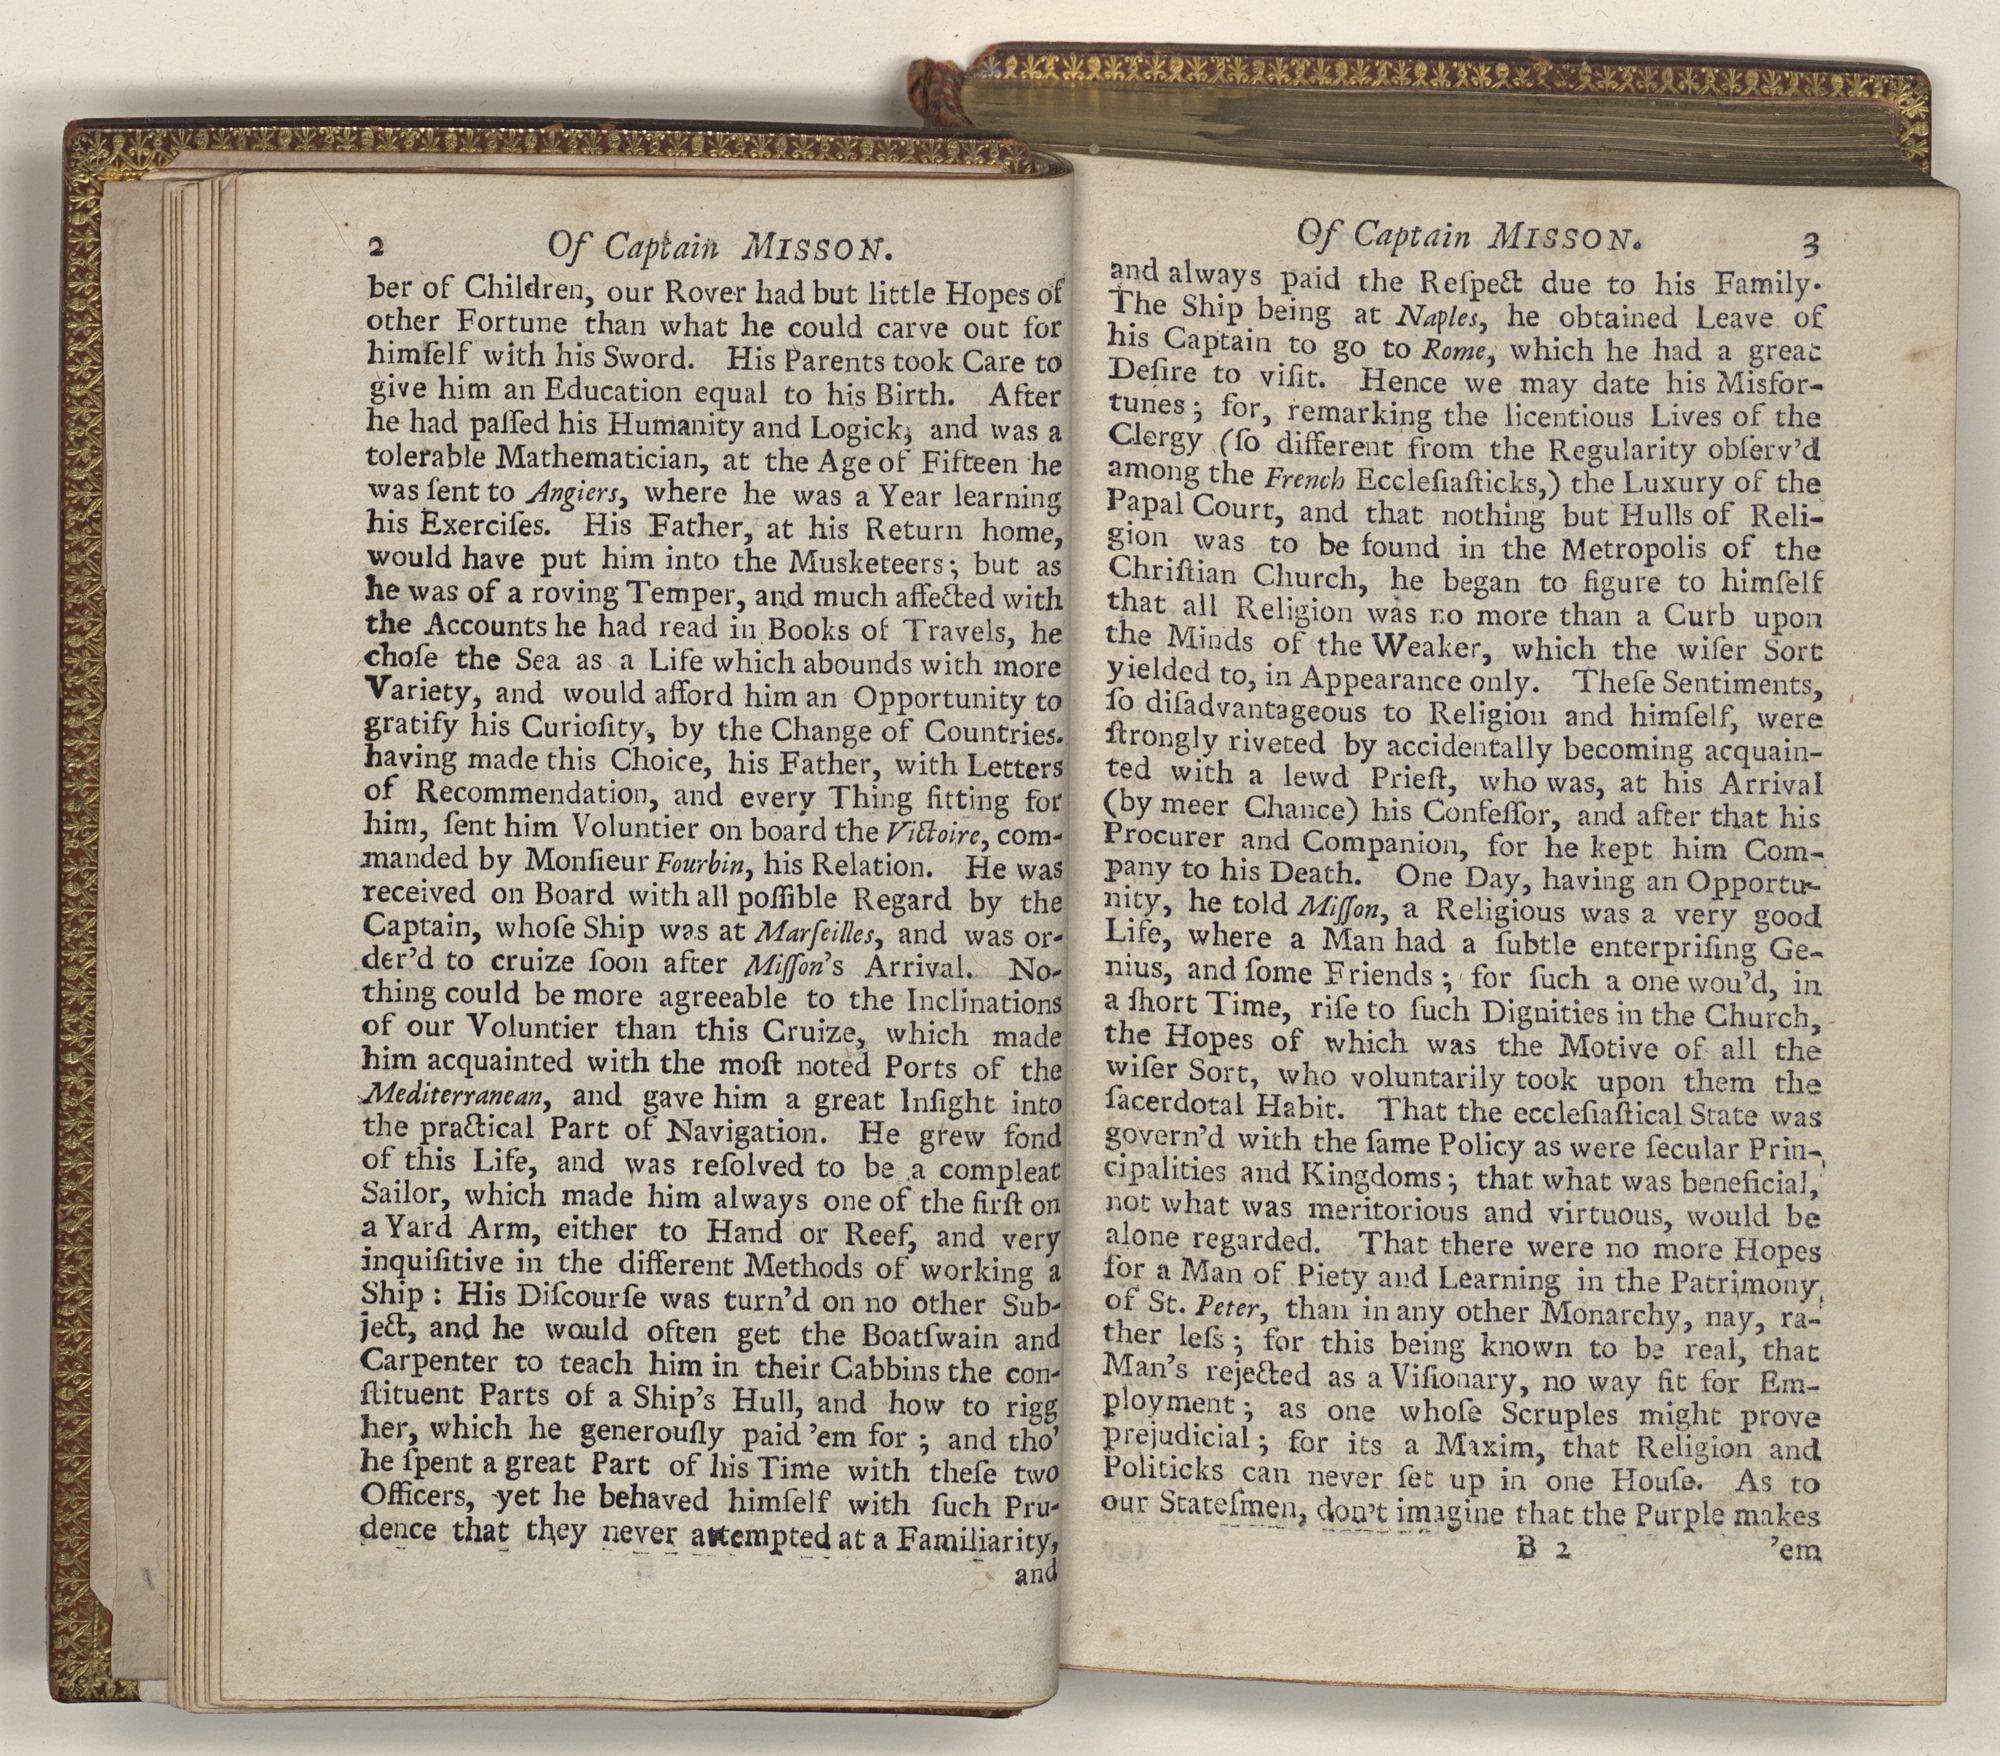 2 Of Captain MISSON.
ber of Children, our Rover had but little Hopes of
other Fortune than what he could carve out for
himſelf with his Sword. His Parents took Care to
give him an Education equal to his Birth. After
he had paſſed his Humanity and Logick, and was a
tolerable Mathematician, at the Age of Fifteen he
was ſent to Angiers, where he was a Year learning
his Exerciſes. His Father, at his Return home,
would have put him into the Musketeers; but as
he was of a roving Temper, and much affected with
the Accounts he had read in Books of Travels, he
choſe the Sea as a Life which abounds with more
Variety, and would afford him an Opportunity to
gratify his Curioſity, by the Change of Countries.
having made this Choice, his Father, with Letters
of Recommendation, and every Thing fitting for
him, ſent him Voluntier on board the Victoire, com-
manded by Monſieur Fourbin, his Relation. He was
received on Board with all poſſible Regard by the
Captain, whoſe Ship was at Marſeilles, and was or-
der'd to cruize ſoon after Miſſon's Arrival. No-
thing could be more agreeable to the Inclinations
of our Voluntier than this Cruize, which made
him acquainted with the moſt noted Ports of the
Mediterranean, and gave him a great Inſight into
the practical Part of Navigation. He grew fond
of this Life, and was reſolved to be a compleat
Sailor, which made him always one of the firſt on
a Yard Arm, either to Hand or Reef, and very
inquiſitive in the different Methods of working a
Ship: His Diſcourſe was turn'd on no other Sub-
ject, and he would often get the Boatſwain and
Carpenter to teach him in their Cabbins the con-
ſtituent Parts of a Ship's Hull, and how to rigg
her, which he generouſly paid 'em for; and tho'
he ſpent a great Part of his Time with theſe two
Officers, yet he behaved himſelf with ſuch Pru-
dence that they never attempted at a Familiarity,
and
Of Captain MISSON. 3
and always paid the Reſpect due to his Family.
The Ship being at Naples, he obtained Leave of
his Captain to go to Rome, which he had a great
Deſire to viſit. Hence we may date his Misfor-
tunes; for, remarking the licentious Lives of the
Clergy (ſo different from the Regularity obſerv'd
among the French Eccleſiaſticks,) the Luxury of the
Papal Court, and that nothing but Hulls of Reli-
gion was to be found in the Metropolis of the
Chriſtian Church, he began to figure to himſelf
that all Religion was no more than a Curb upon
the Minds of the Weaker, which the wiſer Sort
yielded to, in Appearance only. Theſe Sentiments,
ſo diſadvantageous to Religion and himſelf, were
ſtrongly riveted by accidentally becoming acquain-
ted with a lewd Prieſt, who was, at his Arrival
(by meer Chance) his Confeſſor, and after that his
Procurer and Companion, for he kept him Com-
pany to his Death. One Day, having an Opportu-
nity, he told Miſſon, a Religious was a very good
Life, where a Man had a ſubtle enterpriſing Ge-
nius, and ſome Friends; for ſuch a one wou'd, in
a ſhort Time, riſe to ſuch Dignities in the Church,
the Hopes of which was the Motive of all the
wiſer Sort, who voluntarily took upon them the
ſacerdotal Habit. That the eccleſiaſtical State was
govern'd with the ſame Policy as were ſecular Prin-
cipalities and Kingdoms; that what was beneficial,
not what was meritorious and virtuous, would be
alone regarded. That there were no more Hopes
for a Man of Piety and Learning in the Patrimony
of St. Peter, than in any other Monarchy, nay, ra-
ther leſs; for this being known to be real, that
Man's rejected as a Viſionary, no way fit for Em-
ployment; as one whoſe Scruples might prove
prejudicial; for its a Maxim, that Religion and
Politicks can never ſet up in one Houſe. As to
our Stateſmen, don't imagine that the Purple makes
B 2 'em